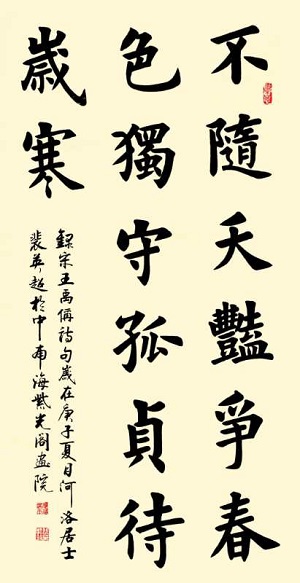 不隨夭豔爭春
色獨守孤貞待
歲寒
錄宋王禹偁詩句歲在庚子夏月河洛居士
裴英超於中南海紫光閣畫院